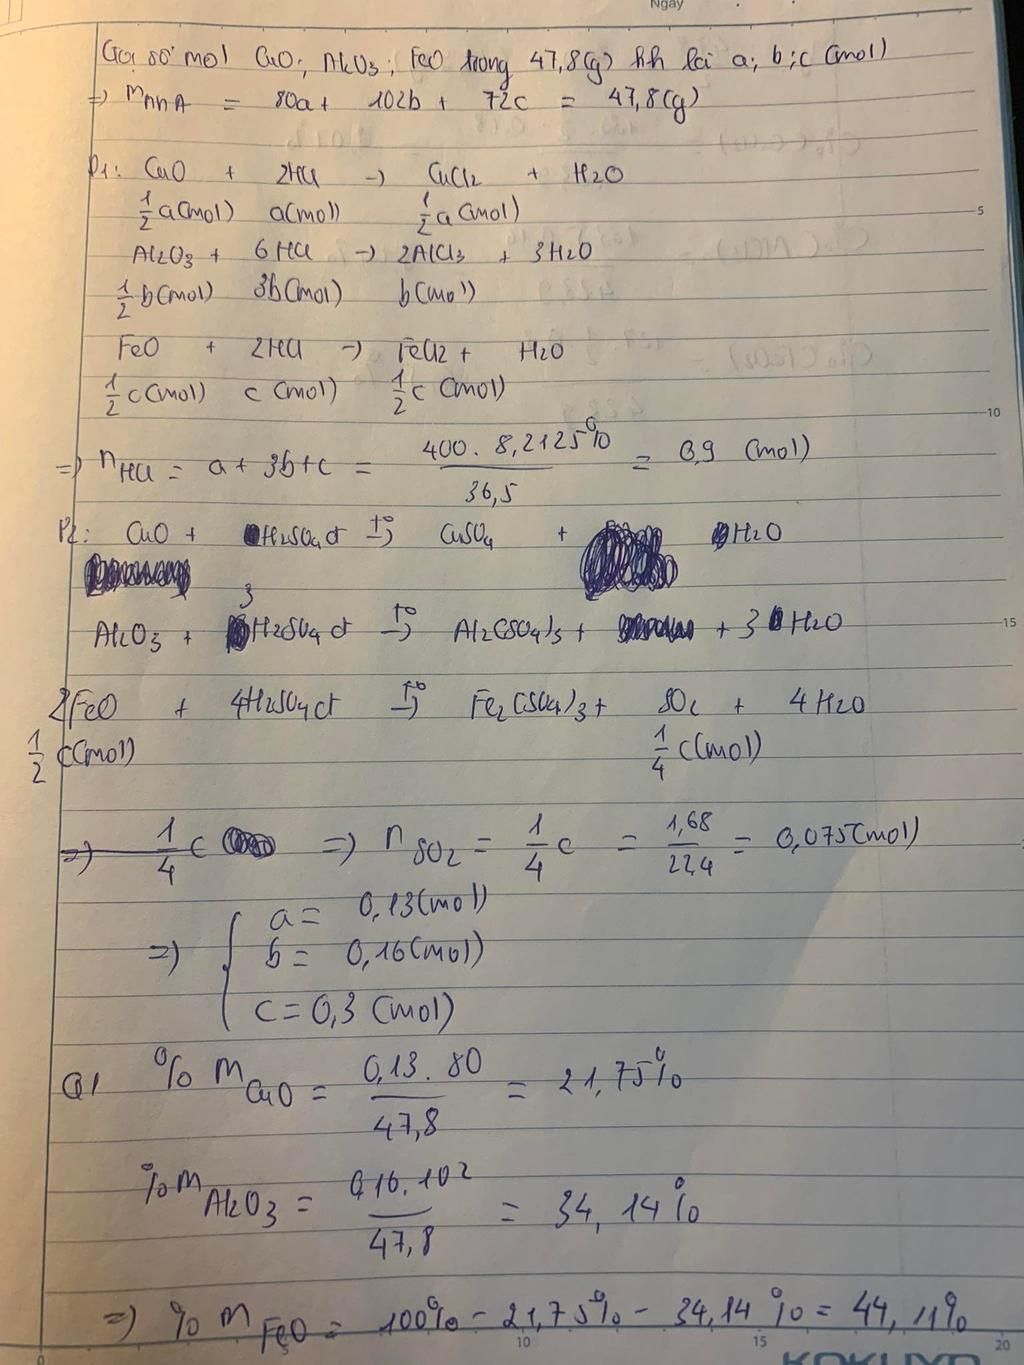 Ngày
Gọi số mol CuO; Al2O3; FeO trong 47,8(g) hh là a; b; c (mol)
=> mhh A = 80a + 102b + 72c = 47,8(g)
P1: CuO + 2HCl -> CuCl2 + H2O
1/2 a(mol) a(mol) 1/2 a (mol)
Al2O3 + 6HCl -> 2AlCl3 + 3H2O
1/2 b(mol) 3b(mol) b(mol)
FeO + 2HCl -> FeCl2 + H2O
1/2 c(mol) c (mol) 1/2 c (mol)
=> nHCl = a + 3b + c = 400. 8,2125% / 36,5 = 0,9 (mol)
P2: CuO + H2SO4đ t° -> CuSO4 + H2O
Al2O3 + 3H2SO4đ t° -> Al2(SO4)3 + + 3H2O
2FeO + 4H2SO4đ t° -> Fe2(SO4)3 + SO2 + 4H2O
1/2 c(mol) 1/4 c(mol)
=> 1/4 c => nSO2 = 1/4 c = 1,68 / 22,4 = 0,075(mol)
=> { a = 0,13(mol)
b = 0,16(mol)
c = 0,3 (mol)
a) % mCuO = 0,13. 80 / 47,8 = 21,75%
% mAl2O3 = 0,16. 102 / 47,8 = 34,14%
=> % mFeO = 100% - 21,75% - 34,14% = 44,11%
5
10
15
0 5 10 15 20
KOKUYO